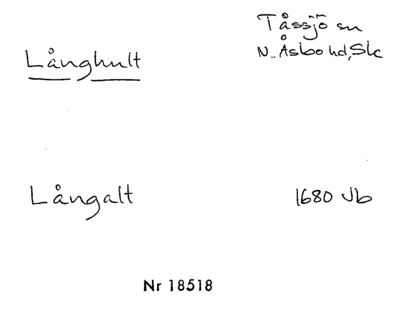 Tåssjö sn
Långhult N. Åsbo hd, Sk
Långalt 1680 Jb
Nr 18518